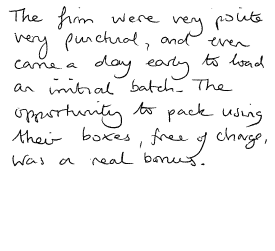 The firm were very polite
very punctual, and even
came a day early to load
an initial batch. The
opportunity to pack using
their boxes, free of charge,
was a real bonus.